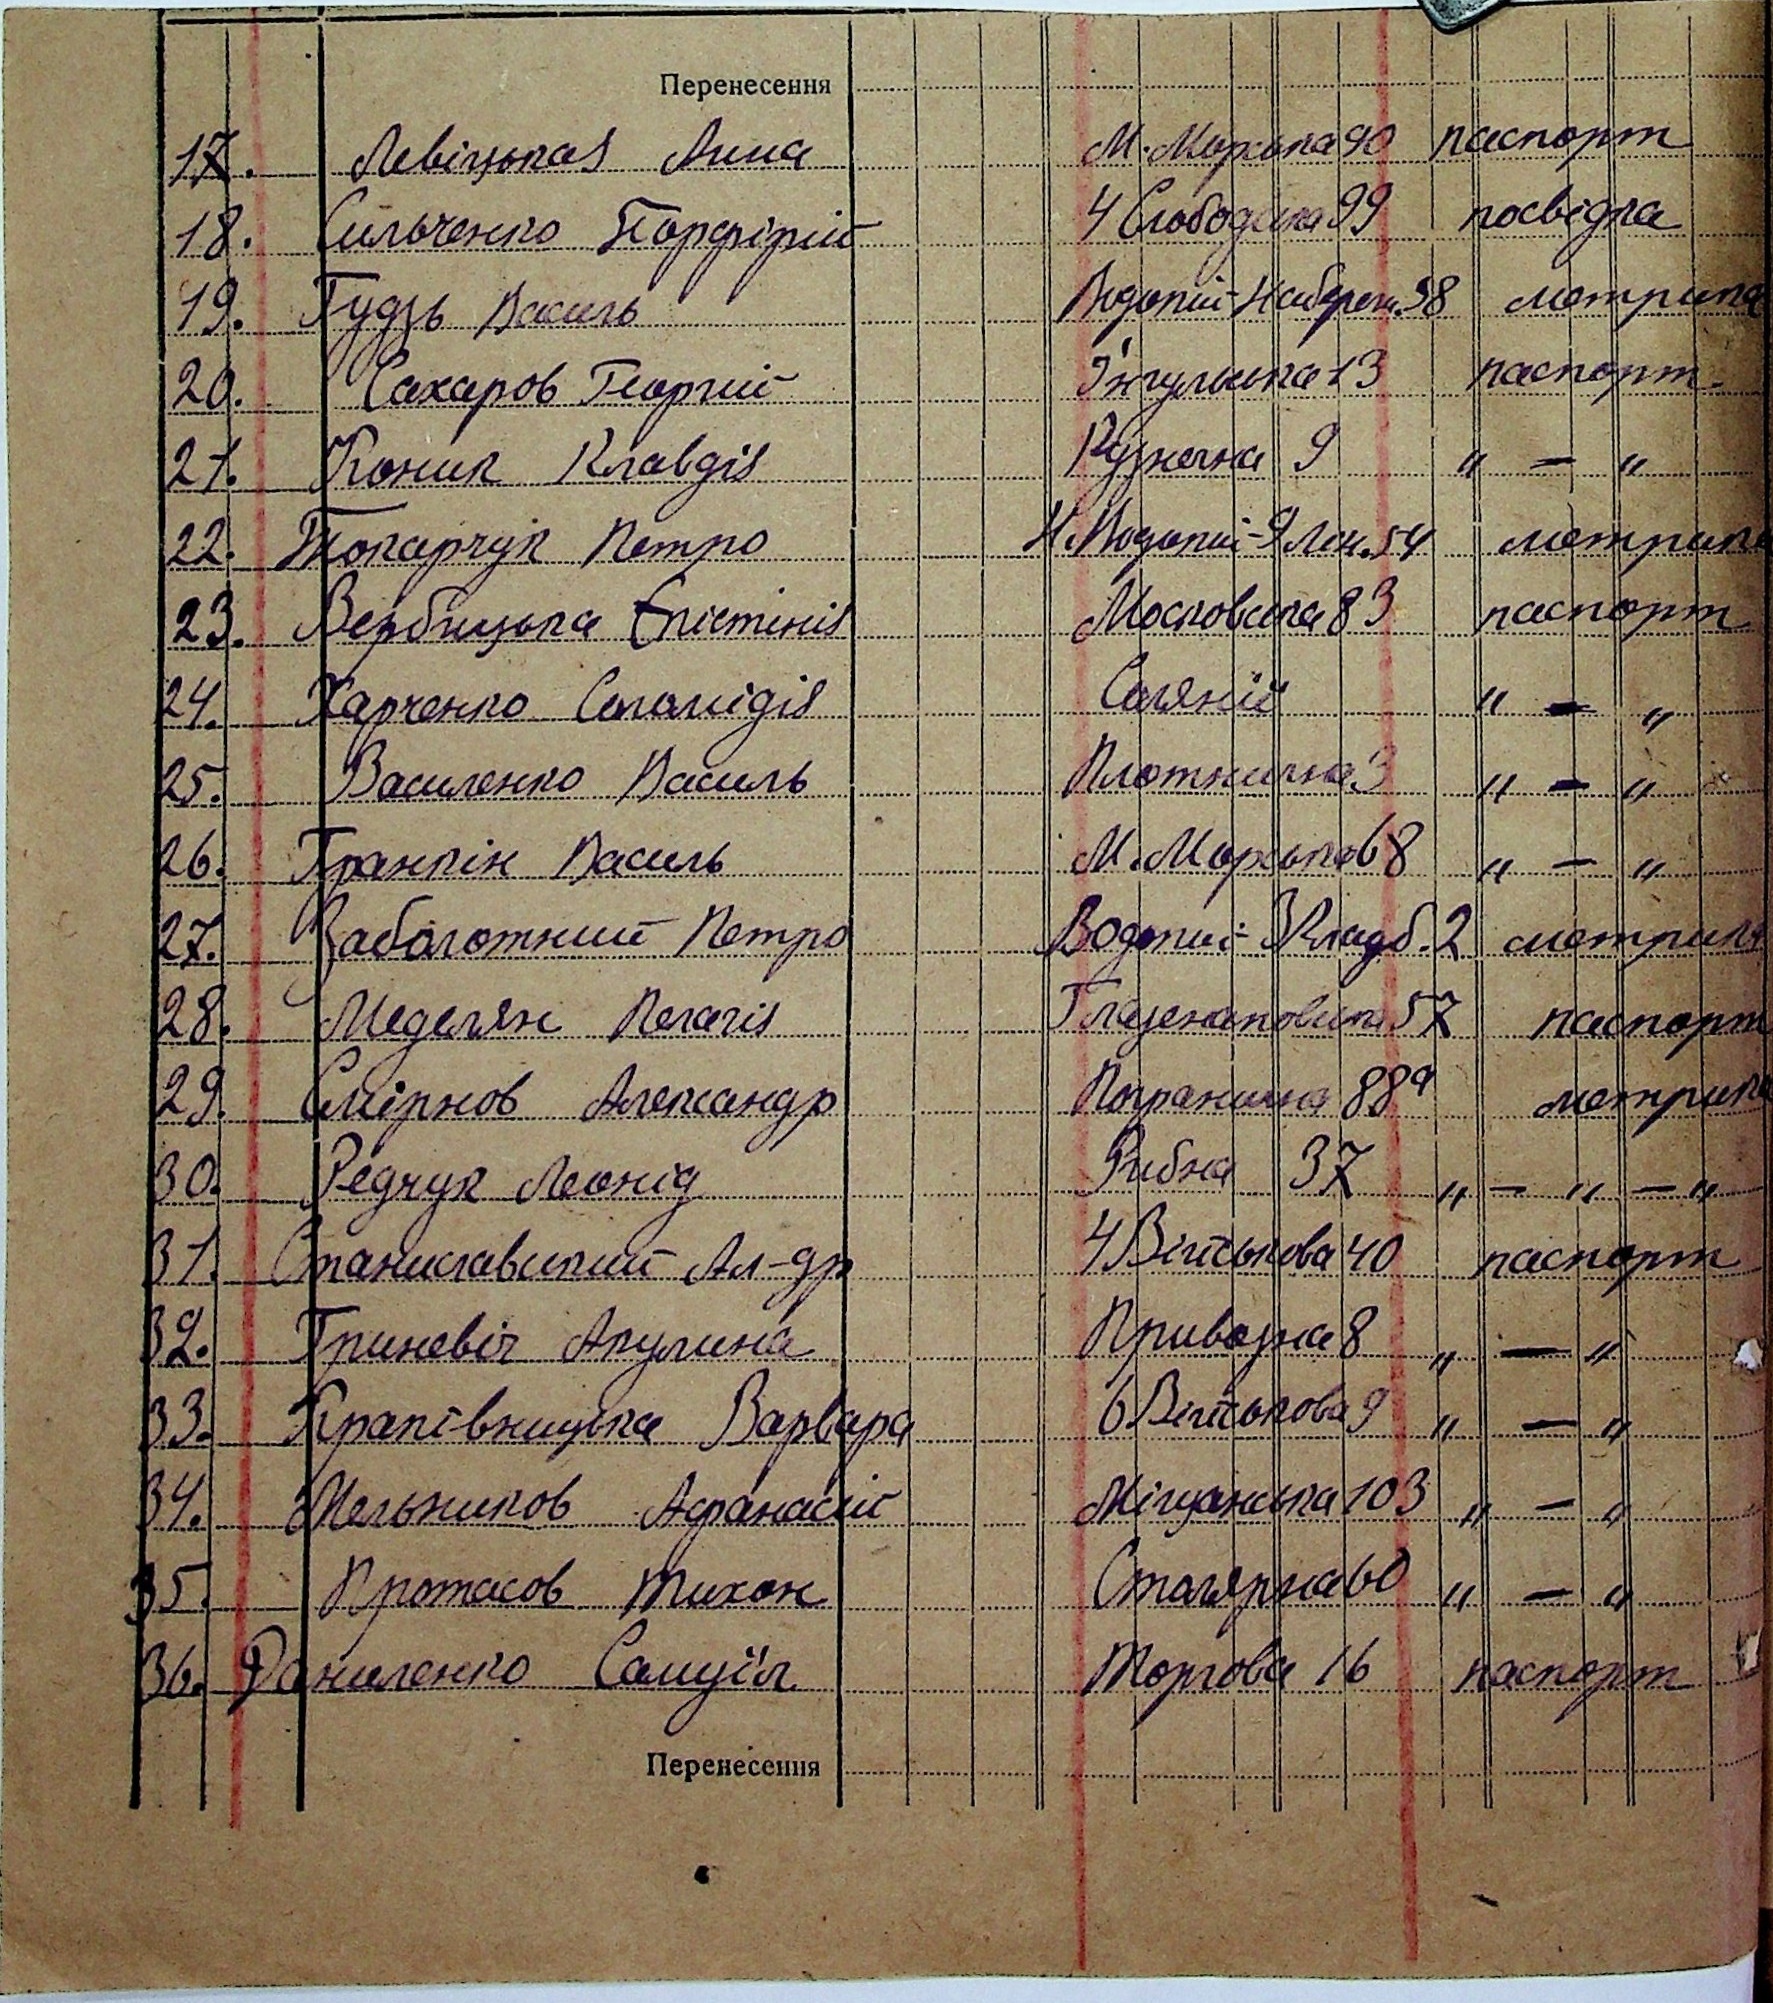 Перенесення
17. Левіцькая Анна М. Морська 90 паспорт
18. Сильченко Порфірий 4 Слободська 99 посвідка
19. Гудзь Василь Водопій-Набереж. 38 метрика
20. Сахаров Георгий Інгульська 13 паспорт
21. Коник Клавдія Кузнечна 9 " — "
22. Токарчук Петро Н. Водопій-9 Лен. 54 метрика
23. Вербицька Єпістінія Московська 83 паспорт
24. Харченко Соломідія Соляній " — "
25. Василенко Василь Плотнична 3 " — "
26. Гранкін Василь М. Морська 68 " — "
27. Заболотний Петро Водопій-3 Кладб. 2 метрика
28. Меделян Пелагія Глазенаповська 57 паспорт
29. Смірнов Александр Погранична 88а метрика
30. Редчук Леонід Рибна 37 " — " — "
31. Станиславський Ал-др 4 Військова 40 паспорт
32. Гриневіч Акулина Привозна 8 " — "
33. Крапівницька Варвара 6 Військова 9 " — "
34. Мельников Афанасій Міщанська 103 " — "
35. Протасов Тихон Столярна 60 " — "
36. Даниленко Самуїл Торгова 16 паспорт
Перенесення